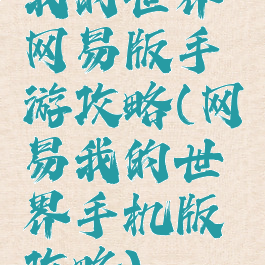 我的世界
网易版手
游攻略(网
易我的世
界手机版
攻略)